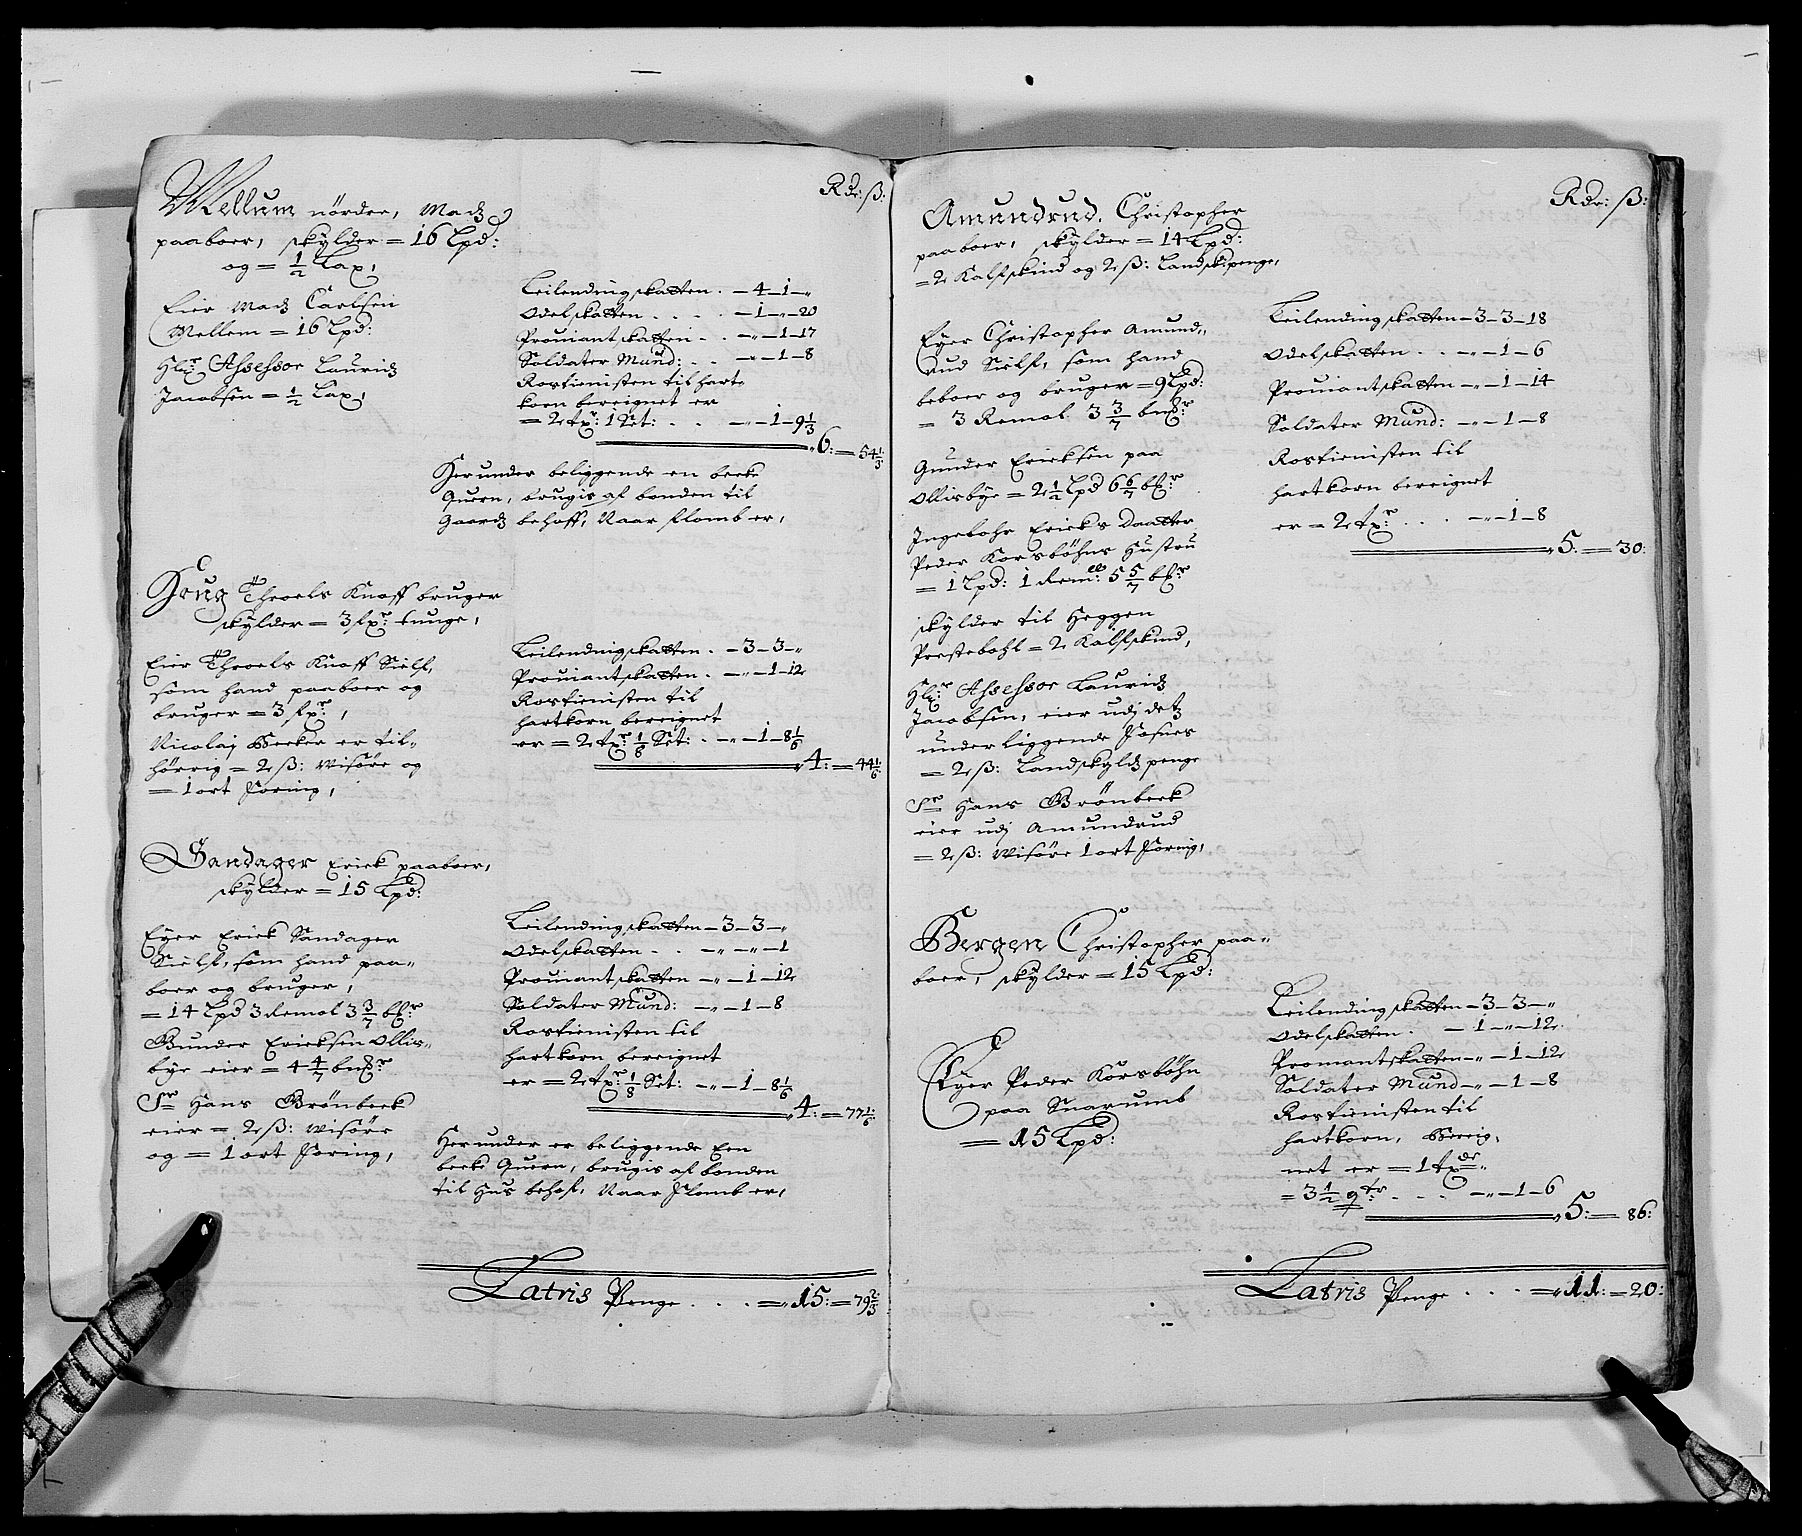 Rdr: ß:
Mellum nörder, Madz
paaboer, skylder = 16 Lpd:
og = 1/2 Lax,
Eier Madz Carlsen
Mellem = 16 Lpd:
Hr: Assessor Lauridz
Jacobsen = 1/2 Lax,
Leilendingskatten . – 4 – 1 – „
Odelskatten . . . . – 1 – „ – 20
Prouiantskatten . . – „ – 1 – 17
Soldater Mund: . . – „ – 1 – 8
Rostienisten til hart-
korn bereignet er
= 2 txr: 1 Set: . . – „ – 1 – 9 1/3
6: = 54 1/3
Herunder beliggende en beck
Quern, brugis af bonden til
Gaardz behoff, Naar flomb er,
Krug Throels Knoff bruger
skylder = 3 fxr: tunge,
Eier Throels Knoff Sielf,
som hand paaboer og
bruger = 3 fxr:,
Nicolaj Becker er til-
hörrig = 2 ß: Wisöre og
= 1 ort foring,
Leilendingskatten . – 3 – 3 – „
Prouiantskatten . – „ – 1 – 12
Rostienisten til
hartkorn bereignet
er = 2 txr: 1/8 Set: . – „ – 1 – 8 1/6
4: = 44 1/6
Sandager Erick paaboer,
skylder = 15 Lpd:
Eyer Erick Sandager
Sielf, som hand paa-
boer og bruger,
= 14 Lpd 3 Remol 3 3/7 bxr
Gunder Ericksen Ollis-
bye eier = 4 4/7 bmxr
Sr Hans Brönbeck
eier = 2 ß: Wisöre
og = 1 ort foring,
Leilendingskatten – 3 – 3 – „
Odelskatten . . – „ – „ – 1
Prouiantskatten – „ – 1 – 12
Soldater Mund: – „ – 1 – 8
Rostienisten til
hartkorn bereignet
er = 2 txr: 1/8 Set: – „ – 1 – 8 1/6
4: = 77 1/6
Herunder er beliggende Een
becke Quern, brugis af bonden
til Hus behof, Naar flomb er,
Latris Penge . . . = „ 15: = 79 2/3
Rdr: ß:
Amundrud. Christopher
paaboer, skylder = 14 Lpd:
= 2 Kalfskind og 2 ß: Landskpenge,
Eyer Christopher Amund-
rud Sielf, som hand
beboer og bruger = 9 Lpd:
= 3 Remol 3 3/7 bmxr
Gunder Ericksen paa
Ollisbye = 2 1/2 Lpd 6 6/7 bxr
Ingebohr Ericks Daatter
Peder Korsböhns Hustru
= 1 Lpd: 1 Rem: 5 5/7 bxr
skylder til Heggen
Prestebohl = 2 Kalfskind,
Hr: Assessor Lauridz
Jacobsen, eier udj detz
underliggende Fosnes
= 2 ß: Landskyldz penge
Sr Hans Brönbeck
eier udj Amundrud
= 2 ß: Wisöre 1 ort foring,
Leilendingskatten – 3 – 3 – 18
Odelskatten . . – „ – 1 – 6
Prouiantskatten – „ – 1 – 14
Soldater Mund: – „ – 1 – 8
Rostienisten til
hartkorn bereignet
er = 2 txr: . . . – „ – 1 – 8
5: = 30:
Bergen Christopher paa-
boer, skylder = 15 Lpd:
Eyer Peder Korsböhn
paa Snarumb
= 15 Lpd:
Leilendingskatten – 3 – 3 – „
Odelskatten . – 1 – „ – 12
Prouiantskatten – „ – 1 – 12
Soldater Mund – „ – 1 – 8
Rostienisten til
hartkorn, Bereig-
net er = 1 tx
= 3 1/2 qtr . . . – „ – 1 – 6
5: = 86:
Latris Penge . . . = „ 11: = 20: